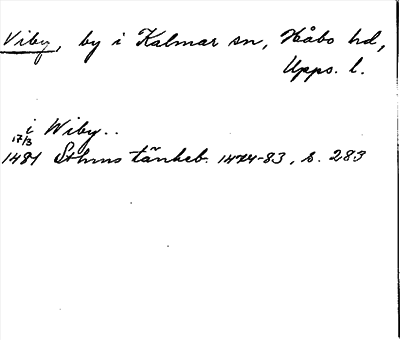 Viby, by i Kalmar sn, Håbo hd,
Upps. l.
i Wiby..
17/3
1481 Sthms tänkeb. 1474-83, s. 283